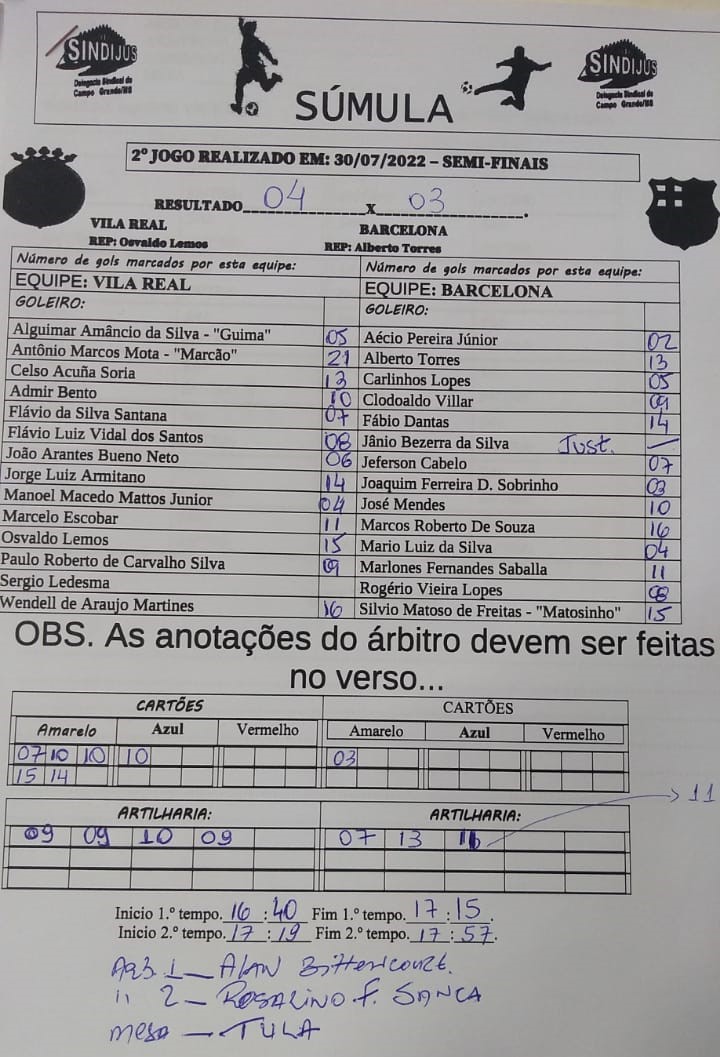 SINDIJUS
Delegacia Sindical de
Campo Grande/MS
SÚMULA
SINDIJUS
Delegacia Sindical de
Campo Grande/MS
2º JOGO REALIZADO EM: 30/07/2022 – SEMI-FINAIS
RESULTADO 04 x 03.
VILA REAL BARCELONA
REP: Osvaldo Lemos REP: Alberto Torres
Número de gols marcados por esta equipe: Número de gols marcados por esta equipe:
EQUIPE: VILA REAL EQUIPE: BARCELONA
GOLEIRO: GOLEIRO:
Alguimar Amâncio da Silva - "Guima" 05 Aécio Pereira Júnior 02
Antônio Marcos Mota - "Marcão" 21 Alberto Torres 13
Celso Acuña Soria 13 Carlinhos Lopes 05
Admir Bento 10 Clodoaldo Villar 09
Flávio da Silva Santana 07 Fábio Dantas 14
Flávio Luiz Vidal dos Santos 08 Jânio Bezerra da Silva Just. —
João Arantes Bueno Neto 06 Jeferson Cabelo 07
Jorge Luiz Armitano 14 Joaquim Ferreira D. Sobrinho 03
Manoel Macedo Mattos Junior 04 José Mendes 10
Marcelo Escobar 11 Marcos Roberto De Souza 16
Osvaldo Lemos 15 Mario Luiz da Silva 04
Paulo Roberto de Carvalho Silva 09 Marlones Fernandes Saballa 11
Sergio Ledesma Rogério Vieira Lopes 08
Wendell de Araujo Martines 16 Silvio Matoso de Freitas - "Matosinho" 15
OBS. As anotações do árbitro devem ser feitas
no verso...
CARTÕES CARTÕES
Amarelo Azul Vermelho Amarelo Azul Vermelho
07 10 10 10 03
15 14
ARTILHARIA: ARTILHARIA: → 11
09 09 10 09 07 13
Inicio 1.º tempo. 16 : 40 Fim 1.º tempo. 17 : 15.
Inicio 2.º tempo. 17 : 19 Fim 2.º tempo. 17 : 57.
Arb 1 — ALAN Bittencourt.
11 2 — ROSALINO F. SANCA
mesa — TULA